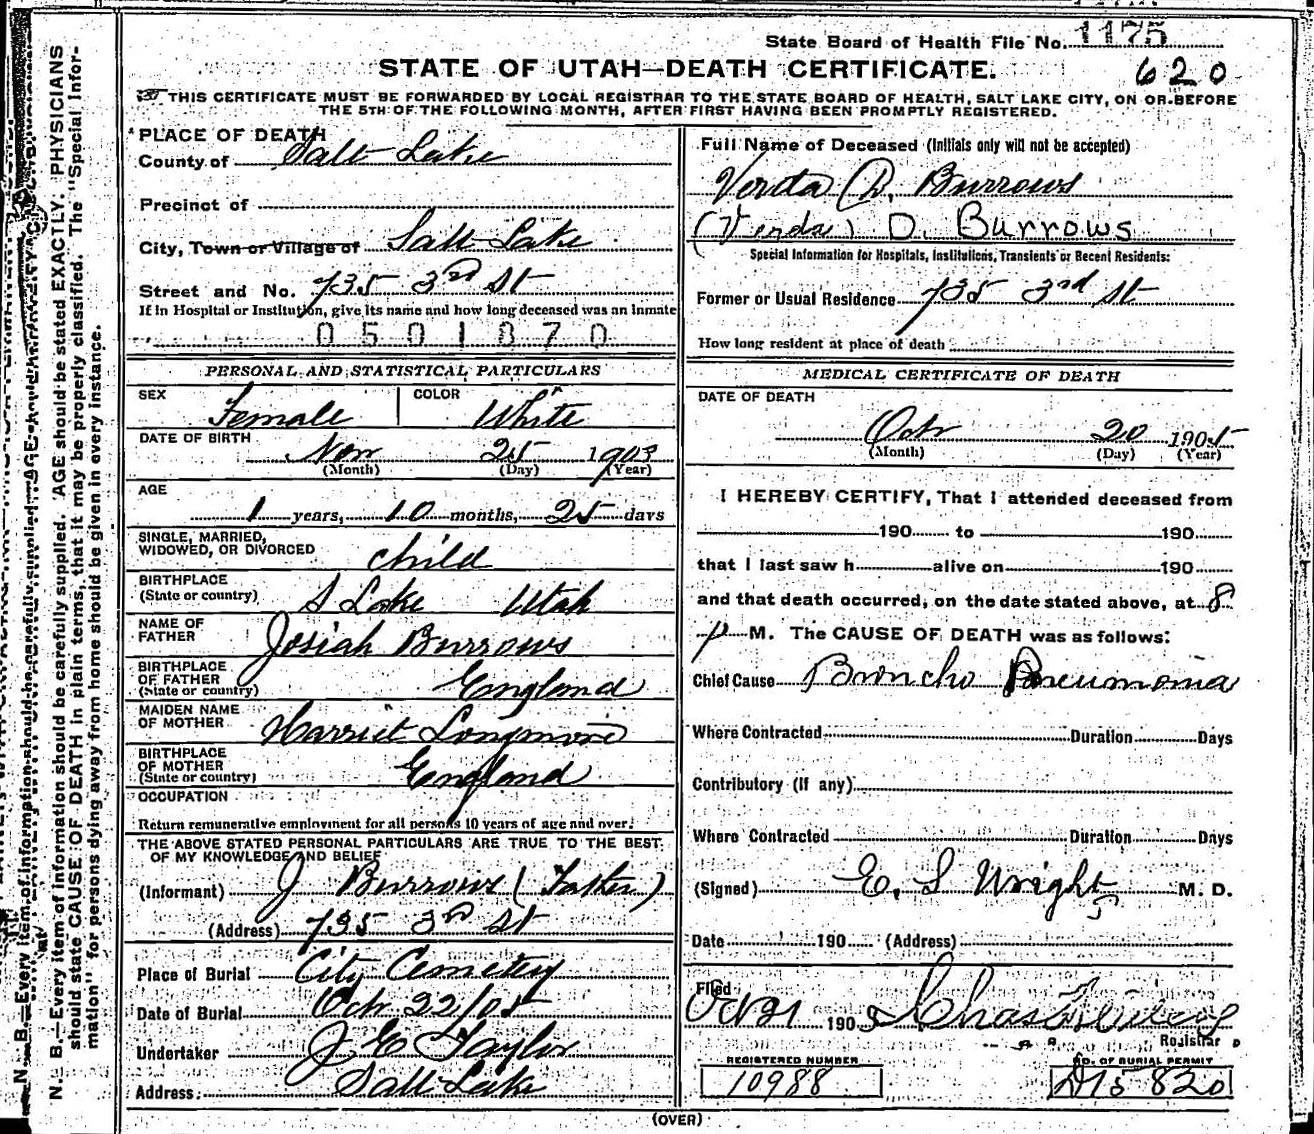 State Board of Health File No. 1175
620
STATE OF UTAH—DEATH CERTIFICATE.
THIS CERTIFICATE MUST BE FORWARDED BY LOCAL REGISTRAR TO THE STATE BOARD OF HEALTH, SALT LAKE CITY, ON OR BEFORE
THE 5TH OF THE FOLLOWING MONTH, AFTER FIRST HAVING BEEN PROMPTLY REGISTERED.
PLACE OF DEATH
County of Salt Lake
Precinct of
City, Town or Village of Salt Lake
Street and No. 735 3rd St
If in Hospital or Institution, give its name and how long deceased was an inmate
0501870
PERSONAL AND STATISTICAL PARTICULARS
SEX Female COLOR White
DATE OF BIRTH
Nov 25 1903
(Month) (Day) (Year)
AGE
1 years, 10 months, 25 days
SINGLE, MARRIED,
WIDOWED, OR DIVORCED child
BIRTHPLACE
(State or country) S Lake Utah
NAME OF
FATHER Josiah Burrows
BIRTHPLACE
OF FATHER
(State or country) England
MAIDEN NAME
OF MOTHER Harriet Longmore
BIRTHPLACE
OF MOTHER
(State or country) England
OCCUPATION
Return remunerative employment for all persons 10 years of age and over.
THE ABOVE STATED PERSONAL PARTICULARS ARE TRUE TO THE BEST
OF MY KNOWLEDGE AND BELIEF
(Informant) J Burrows (Father)
(Address) 735 3rd St
Place of Burial City Cemetery
Date of Burial Oct 22/05
Undertaker J E Taylor
Address: Salt Lake
Full Name of Deceased (Initials only will not be accepted)
Verda D. Burrows
(Verda) D. Burrows
Special Information for Hospitals, Institutions, Transients or Recent Residents:
Former or Usual Residence 735 3rd St
How long resident at place of death
MEDICAL CERTIFICATE OF DEATH
DATE OF DEATH
Oct 20 1905
(Month) (Day) (Year)
I HEREBY CERTIFY, That I attended deceased from
190 to 190
that I last saw h alive on 190
and that death occurred, on the date stated above, at 8
p M. The CAUSE OF DEATH was as follows:
Chief Cause Broncho Pneumonia
Where Contracted Duration Days
Contributory (If any)
Where Contracted Duration Days
(Signed) E. S Wright M. D.
Date 190 (Address)
Filed
Oct 21 190 Chas
Registrar
REGISTERED NUMBER
10988
NO. OF BURIAL PERMIT
D15820
(OVER)
N. B.—Every item of information should be carefully supplied. AGE should be stated EXACTLY. PHYSICIANS
should state CAUSE OF DEATH in plain terms, that it may be properly classified. The "Special Infor-
mation" for persons dying away from home should be given in every instance.